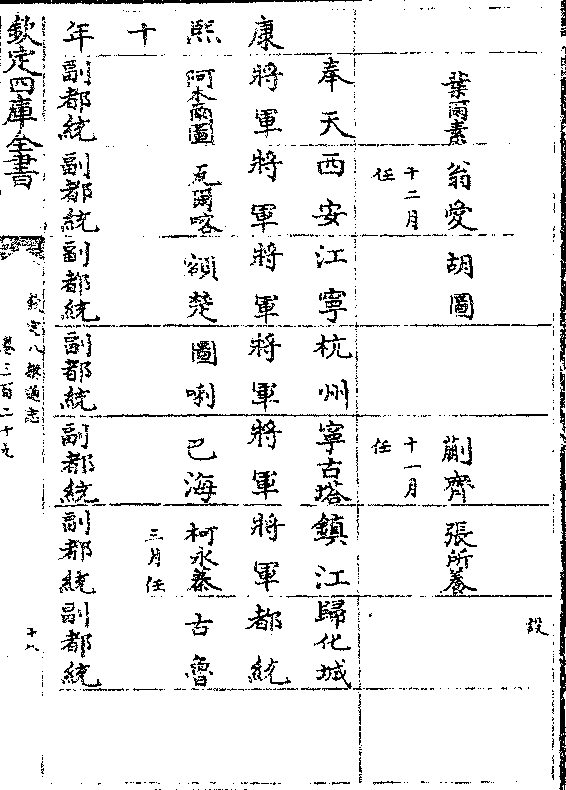 設
葉爾素
翁愛
十二月
任
胡圖
蒯齊
十一月
任
張所養
康熙十年
奉天 西安 江寧 杭州 寧古塔 鎮江 歸化城
將軍 將軍 將軍 將軍 將軍 將軍 都統
阿木爾圖 瓦爾喀 額楚 圖喇 巴海 柯永蓁 古魯
三月任
副都統 副都統 副都統 副都統 副都統 副都統 副都統
欽定四庫全書
欽定八旗通志
卷三百二十九